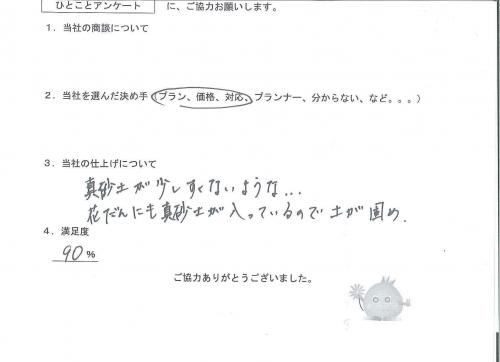 ひとことアンケート に、ご協力お願いします。
1．当社の商談について
2．当社を選んだ決め手（プラン、価格、対応、プランナー、分からない、など。。。）
3．当社の仕上げについて
真砂土が少しすくないような...
花だんにも真砂土が入っているので土が固め.
4．満足度
90 %
ご協力ありがとうございました。